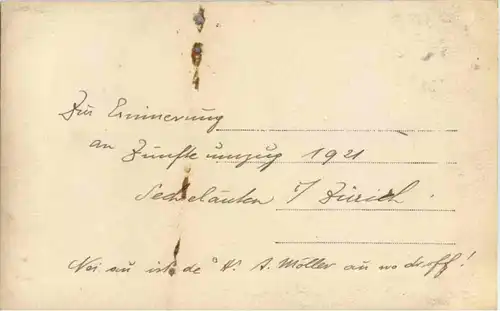 Zur Erinnerung
an Zunfteumzug 1921
Sechseläuten i/ Zürich
Nei au ist de H. A. Möller au wo druff!